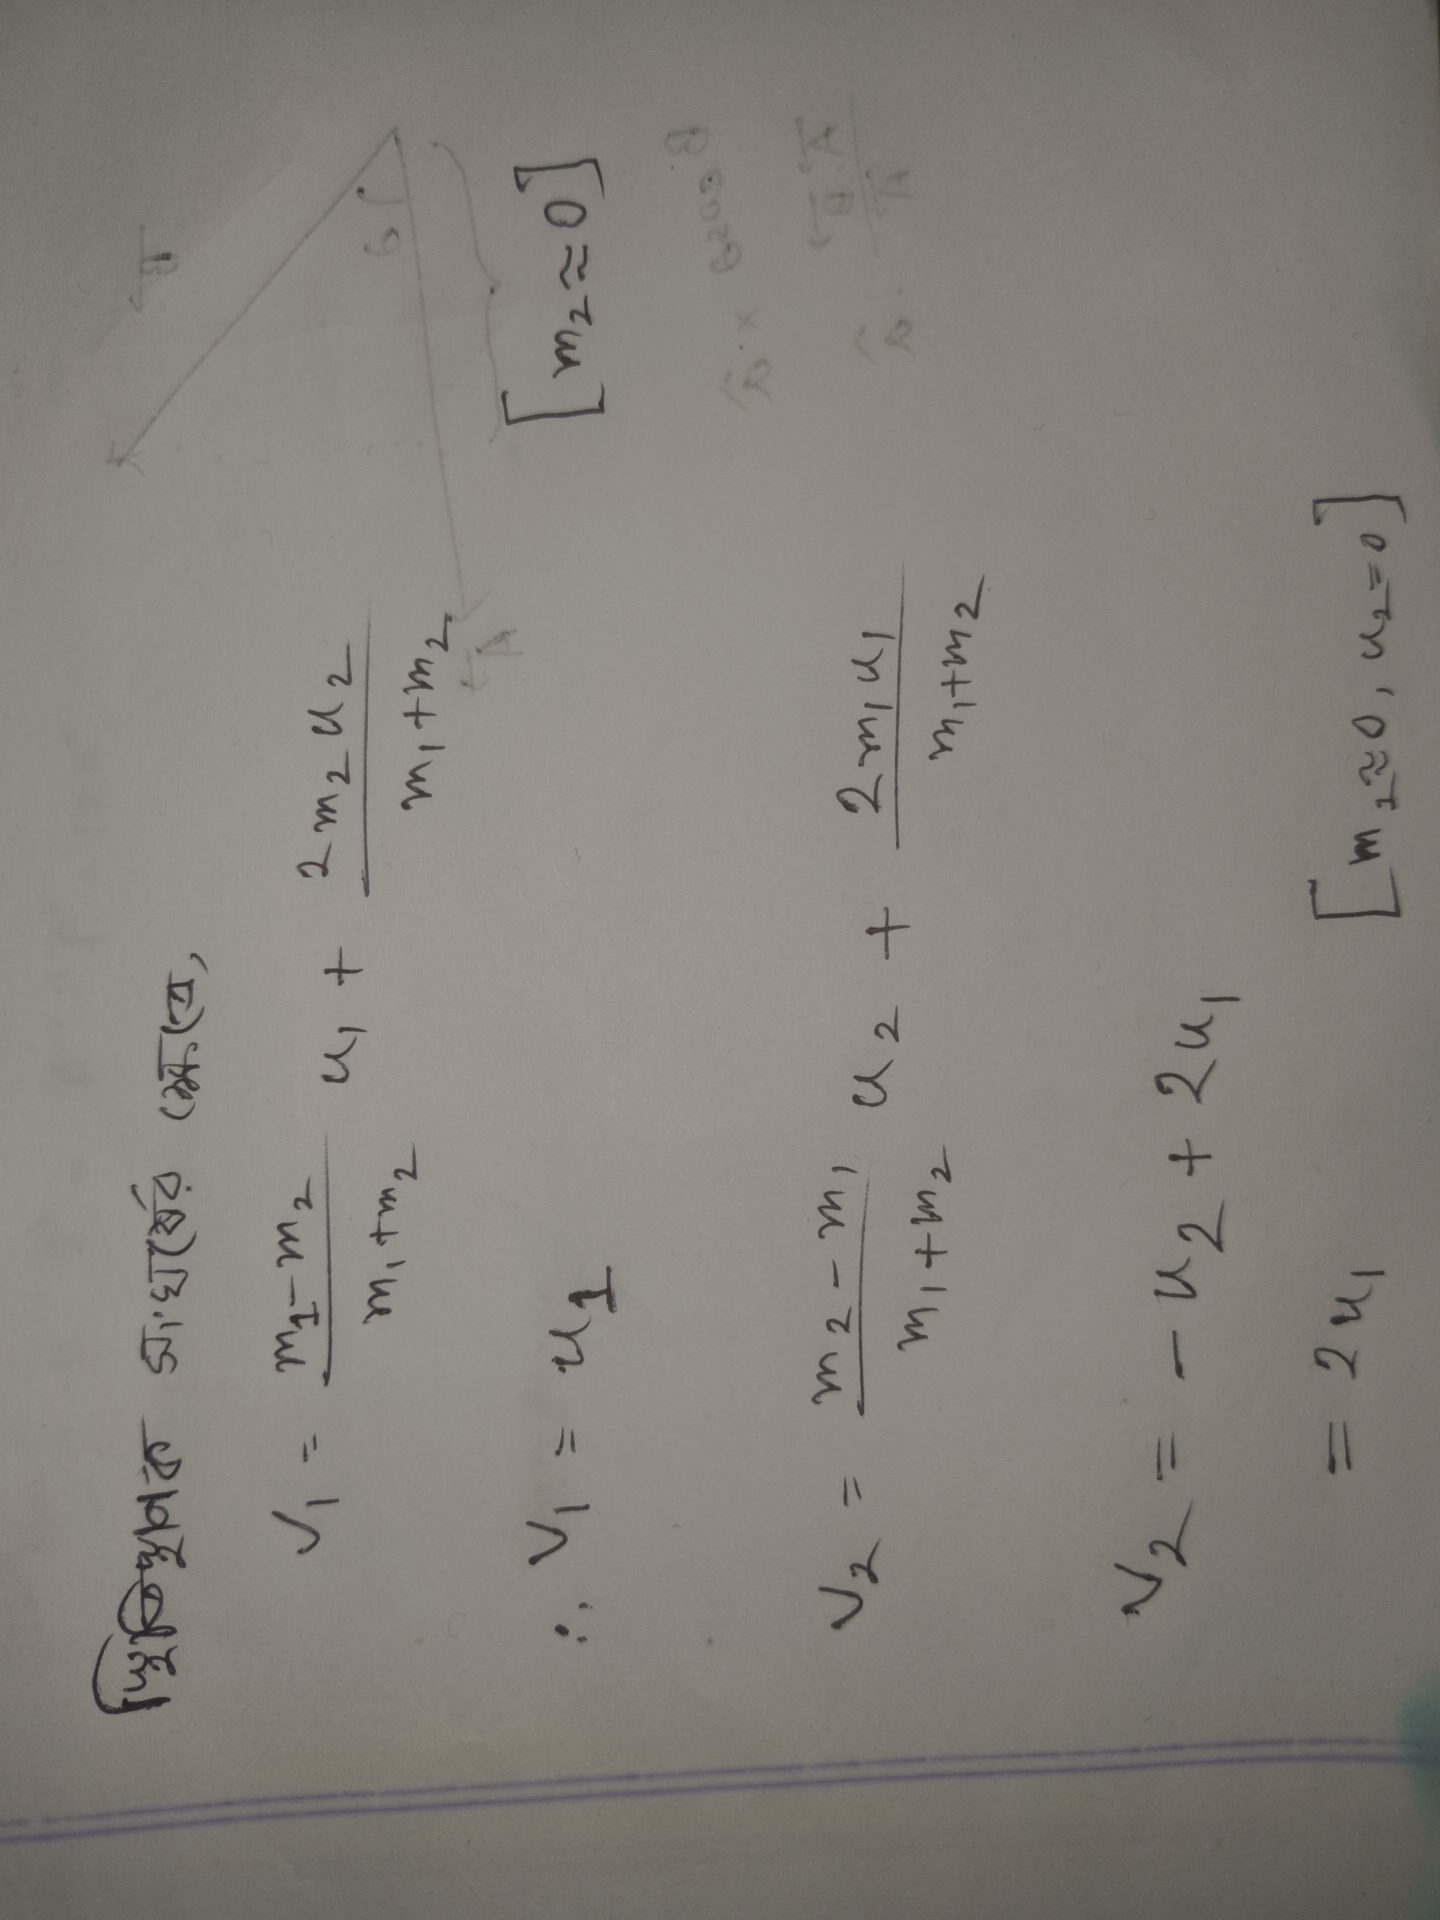 স্থিতিস্থাপক সংঘর্ষের ক্ষেত্রে,
v₁ = (m₁-m₂)/(m₁+m₂) u₁ + (2m₂u₂)/(m₁+m₂)
∴ v₁ = u₁ [m₂≈0]
v₂ = (m₂-m₁)/(m₁+m₂) u₂ + (2m₁u₁)/(m₁+m₂)
v₂ = -u₂+2u₁
= 2u₁ [m₂≈0, u₂=0]